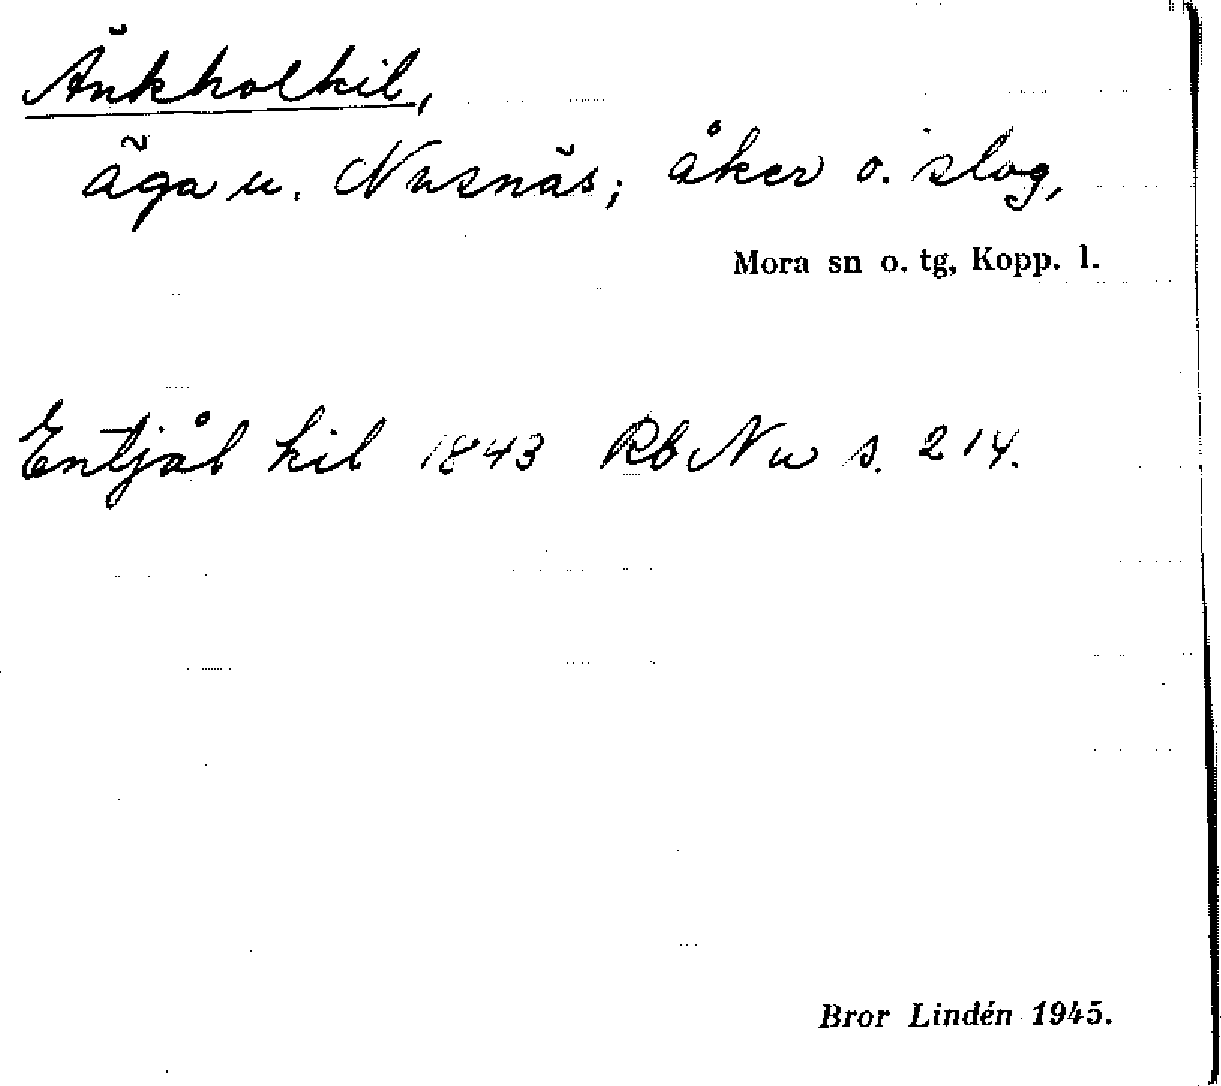 Änkholkil,
äga u. Nusnäs; åker o. slog,
Mora sn o. tg, Kopp. l.
Entjål kil 1843 Rb Nu s. 214.
Bror Lindén 1945.